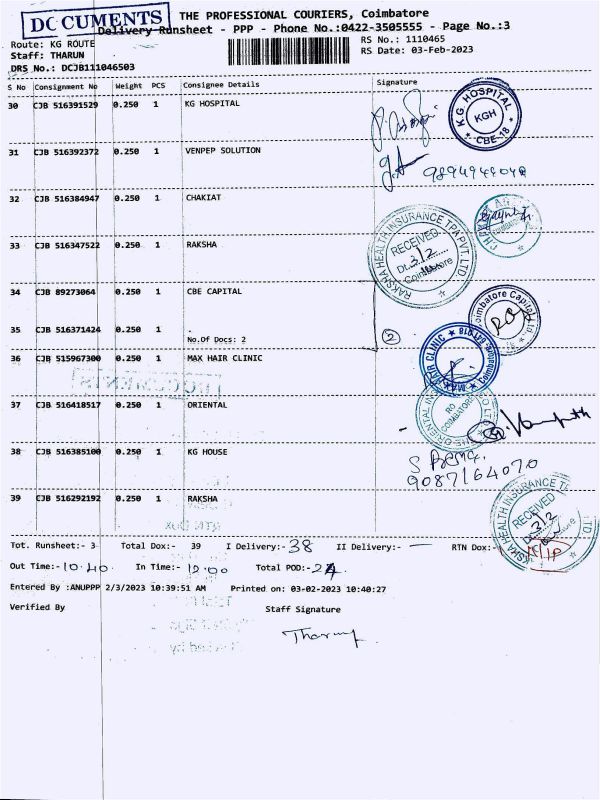 DOCUMENTS
THE PROFESSIONAL COURIERS, Coimbatore
Delivery Runsheet - PPP - Phone No.:0422-3505555 - Page No.:3
Route: KG ROUTE
RS No.: 1110465
Staff: THARUN
RS Date: 03-Feb-2023
DRS No.: DCJB111046503
S No Consignment No Weight PCS Consignee Details Signature
30 CJB 516391529 0.250 1 KG HOSPITAL
K.G. HOSPITAL
KGH
CBE-18
31 CJB 516392372 0.250 1 VENPEP SOLUTION
9894949048
32 CJB 516384947 0.250 1 CHAKIAT
33 CJB 516347522 0.250 1 RAKSHA
RAKSHA HEALTH INSURANCE TPA PVT. LTD
RECEIVED
Dt. 3/2
Coimbatore
34 CJB 89273064 0.250 1 CBE CAPITAL
Coimbatore Capital Ltd.
35 CJB 516371424 0.250 1 .
No.Of Docs: 2
2
36 CJB 515967300 0.250 1 MAX HAIR CLINIC
MAX HAIR CLINIC
Coimbatore-641 018
DOCUMENTS
37 CJB 516418517 0.250 1 ORIENTAL
THE ORIENTAL IN CO LTD
RO
COIMBATORE
38 CJB 516385100 0.250 1 KG HOUSE
9087164070
39 CJB 516292192 0.250 1 RAKSHA
RAKSHA HEALTH INSURANCE TPA LTD
RECEIVED
3/2
RTN Dox
Tot. Runsheet:- 3 Total Dox:- 39 I Delivery:- 38 II Delivery:- — RTN Dox:-
Out Time:- 10.40 In Time:- 19.00 Total POD:- 24
Entered By :ANUPPP 2/3/2023 10:39:51 AM Printed on: 03-02-2023 10:40:27
Verified By Staff Signature
Tharun